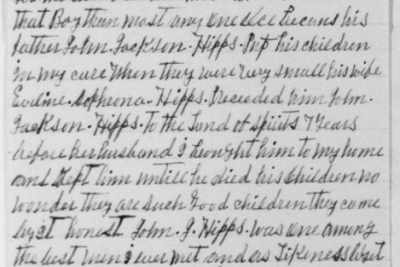 that Boy than most any one else becaus his
father John Jackson. Hipps. Put his children
in my care when they were very small his wife
Eveline Sophrona. Hipps. Preceeded him John.
Jackson. Hipps. To the Land of Spirits 7 Years
before her Husband I brought him to my home
and kept him untill he died his children no
wonder they are such good children they come
by it honest John. J. Hipps. was one among
the best men I ever met and as